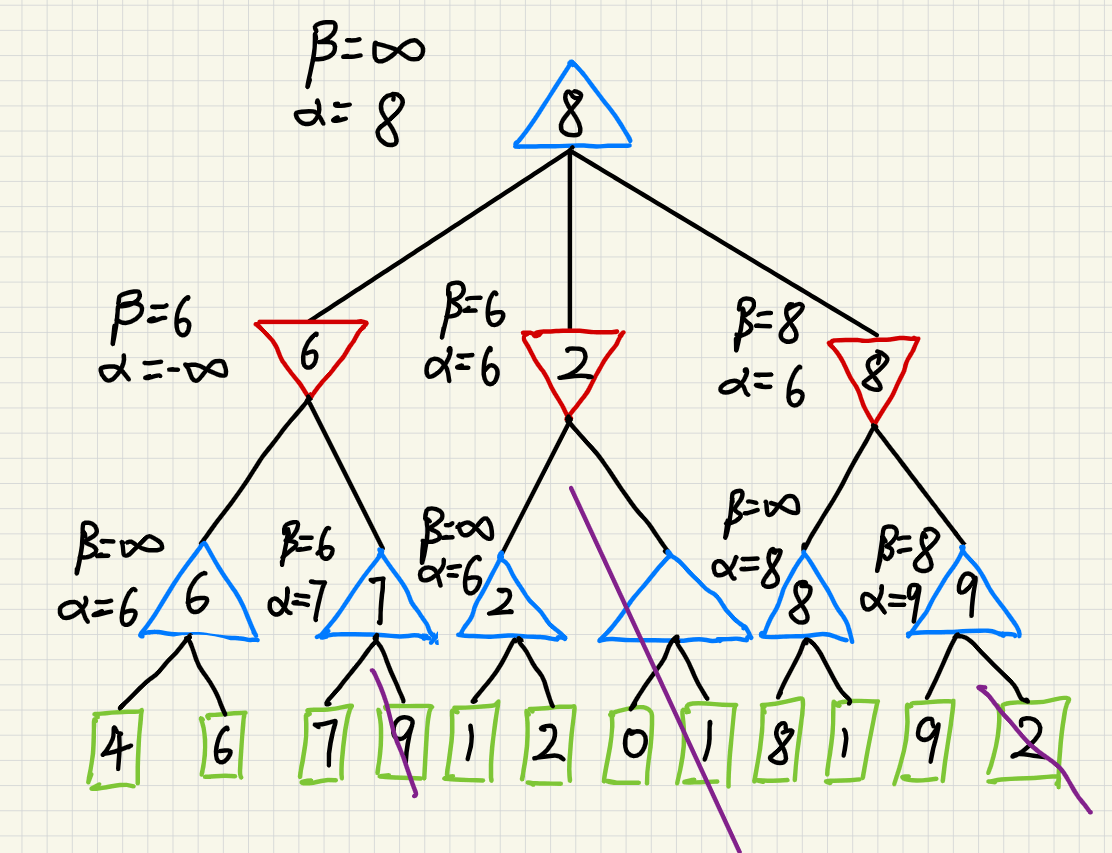 β=∞
α=8
8
β=6
α=-∞
6
β=6
α=6
2
β=8
α=6
8
β=∞
α=6
6
β=6
α=7
7
β=∞
α=6
2
β=∞
α=8
8
β=8
α=9
9
4 6 7 9 1 2 0 1 8 1 9 2